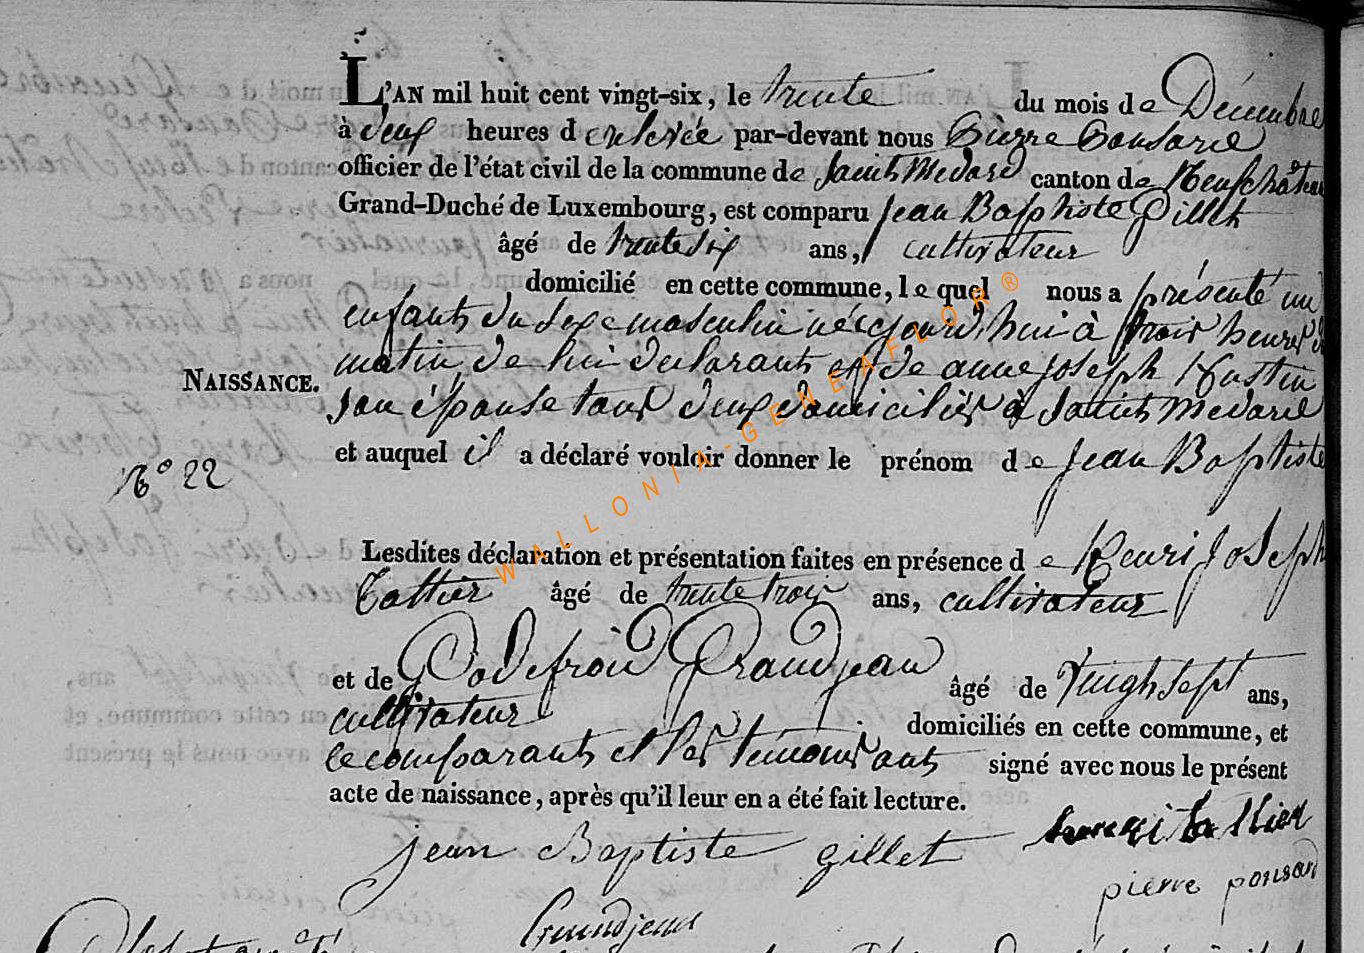 L'AN mil huit cent vingt-six, le trente du mois de Décembre
à deux heures de relevée par-devant nous Pierre Ponsard
officier de l'état civil de la commune de Saint Medard canton de Neufchâteau
Grand-Duché de Luxembourg, est comparu Jean Baptiste Gillet
âgé de trente six ans, cultivateur
domicilié en cette commune, lequel nous a présenté un
enfant du sexe masculin né cejourd'hui à trois heures du
matin de lui declarant et de anne joseph Hustin
son épouse tous deux domiciliés à Saint Medard
NAISSANCE.
et auquel il a déclaré vouloir donner le prénom de Jean Baptiste
N° 22
WALLONIA-GENEAFLOR®
Lesdites déclaration et présentation faites en présence de Henri Joseph
Tattier âgé de trente trois ans, cultivateur
et de Godefroid Grandjean âgé de vingt sept ans,
cultivateur domiciliés en cette commune, et
le comparant et les temoins ont signé avec nous le présent
acte de naissance, après qu'il leur en a été fait lecture.
jean Baptiste gillet
pierre ponsard
Grandjean